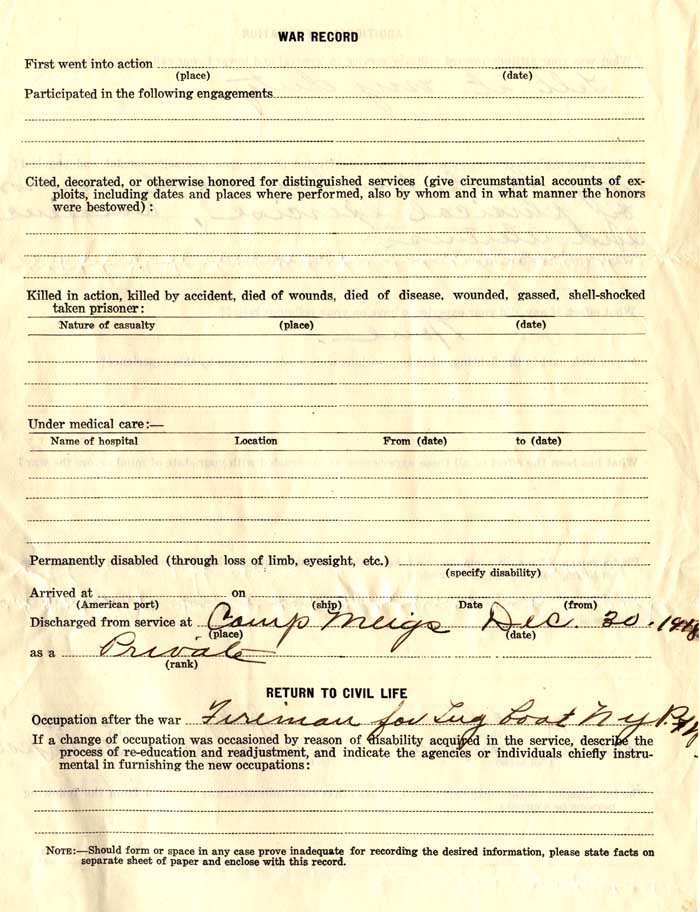 WAR RECORD
First went into action
(place) (date)
Participated in the following engagements
Cited, decorated, or otherwise honored for distinguished services (give circumstantial accounts of ex-
ploits, including dates and places where performed, also by whom and in what manner the honors
were bestowed):
Killed in action, killed by accident, died of wounds, died of disease, wounded, gassed, shell-shocked
taken prisoner:
Nature of casualty (place) (date)
Under medical care:—
Name of hospital Location From (date) to (date)
Permanently disabled (through loss of limb, eyesight, etc.)
(specify disability)
Arrived at on
(American port) (ship) Date (from)
Discharged from service at Camp Meigs Dec. 30. 1918
(place) (date)
as a Private
(rank)
RETURN TO CIVIL LIFE
Occupation after the war Fireman for Tug Boat N Y
If a change of occupation was occasioned by reason of disability acquired in the service, describe the
process of re-education and readjustment, and indicate the agencies or individuals chiefly instru-
mental in furnishing the new occupations:
NOTE:—Should form or space in any case prove inadequate for recording the desired information, please state facts on
separate sheet of paper and enclose with this record.